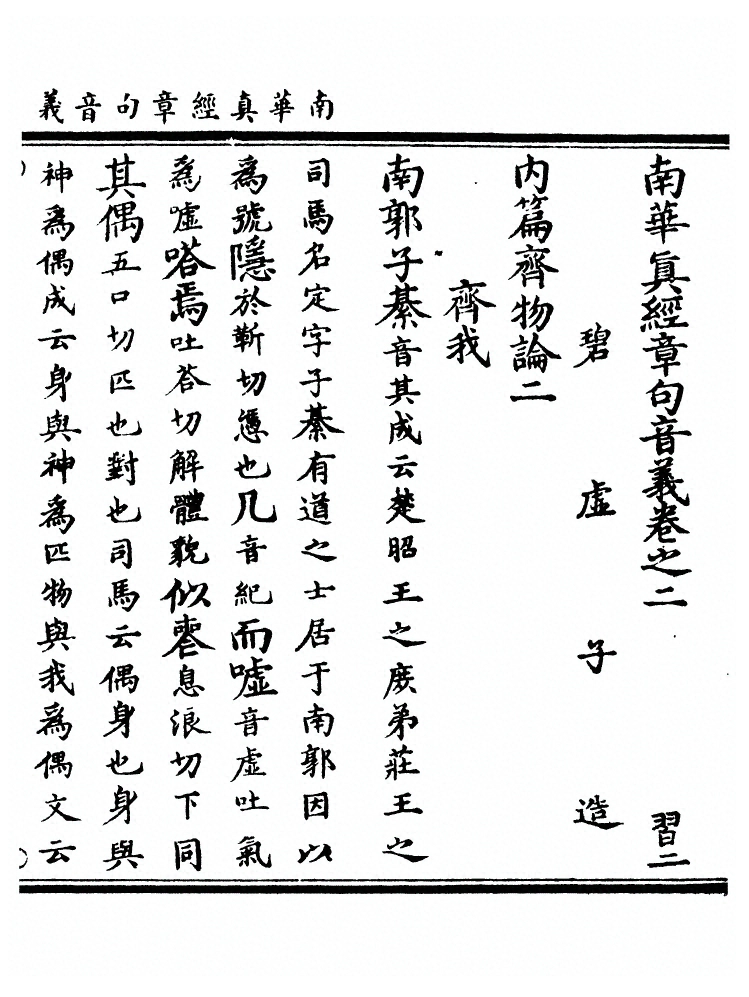 南華真經章句音義
南華眞經章句音義卷之二　習二
碧虛子造
內篇齊物論二
齊我
南郭子綦音其成云楚昭王之庶弟莊王之
司馬名定字子綦有道之士居于南郭因以
爲號隱於靳切慿也几音紀而嘘音虛吐氣
爲嘘嗒焉吐荅切解體貌似䘮息浪切下同
其偶五口切匹也對也司馬云偶身也身與
神爲偶成云身與神爲匹物與我爲偶文云